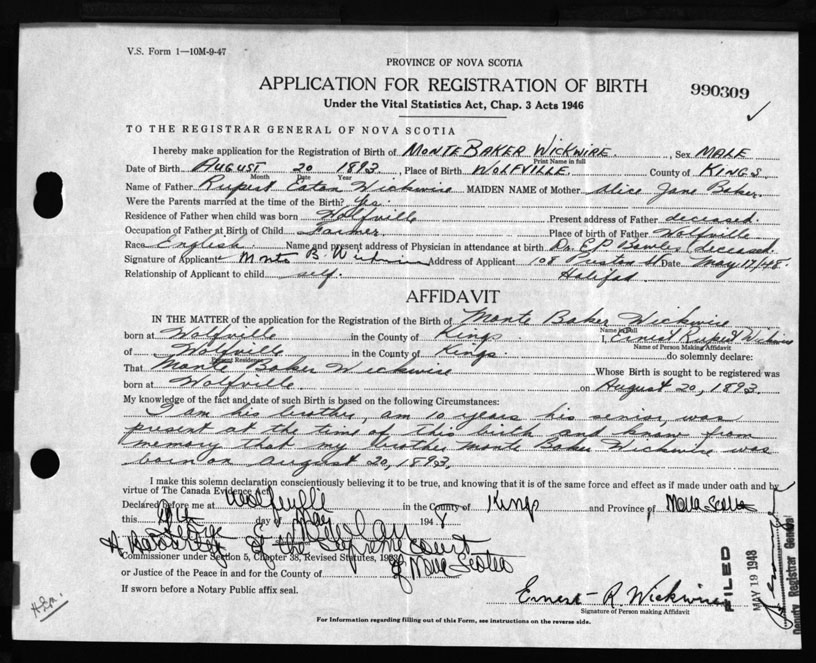 V.S. Form 1—10M-9-47
PROVINCE OF NOVA SCOTIA
APPLICATION FOR REGISTRATION OF BIRTH
990309
Under the Vital Statistics Act, Chap. 3 Acts 1946
TO THE REGISTRAR GENERAL OF NOVA SCOTIA
I hereby make application for the Registration of Birth of MONTE BAKER WICKWIRE, Sex MALE
Print Name in full
Date of Birth AUGUST 20 1893, Place of Birth WOLFVILLE County of KINGS
Month Date Year
Name of Father Rupert Eaton Wickwire MAIDEN NAME of Mother Alice Jane Baker.
Were the Parents married at the time of the Birth? Yes.
Residence of Father when child was born Wolfville Present address of Father deceased.
Occupation of Father at Birth of Child Farmer. Place of birth of Father Wolfville
Race English. Name and present address of Physician in attendance at birth Dr. E.P. Bowles (deceased.
Signature of Applicant Monte B. Wickwire Address of Applicant 108 Preston St. Date May 17/48.
Relationship of Applicant to child self. Halifax.
AFFIDAVIT
IN THE MATTER of the application for the Registration of Birth of Monte Baker Wickwire
Name in full
born at Wolfville in the County of Kings I, Ernest Rupert Wickwire
Name of Person Making Affidavit
of Wolfville in the County of Kings do solemnly declare:
Present Residence
That Monte Baker Wickwire Whose Birth is sought to be registered was
born at Wolfville on August 20, 1893.
My knowledge of the fact and date of such Birth is based on the following Circumstances:
I am his brother, am 10 years his senior, was
present at the time of this birth and know from
memory that my brother Monte Baker Wickwire was
born on August 20, 1893.
I make this solemn declaration conscientiously believing it to be true, and knowing that it is of the same force and effect as if made under oath and by
virtue of The Canada Evidence Act.
Declared before me at Wolfville in the County of Kings and Province of Nova Scotia
this day of May 1948
Nowlan
A Barrister of the Supreme Court
Commissioner under Section 5, Chapter 38, Revised Statutes, 1923
of Nova Scotia
or Justice of the Peace in and for the County of
If sworn before a Notary Public affix seal.
Ernest R. Wickwire
Signature of Person making Affidavit
For Information regarding filling out of this Form, see instructions on the reverse side.
FILED
MAY 19 1948
Deputy Registrar General